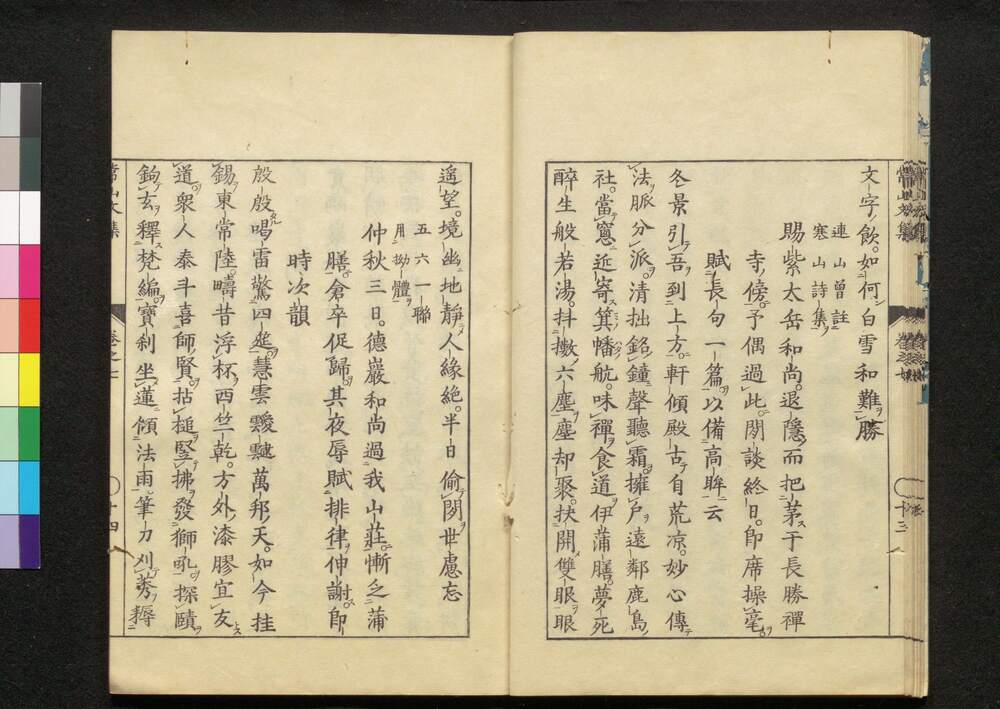 文字飲。如何白雪和難勝
連山曽註
寒山詩集
賜紫太岳和尚。退隱而把茅于長勝禪
寺傍。予偶過此。閑談終日。即席操毫。
賦長句一篇。以備高眸云
冬景引吾到上方。軒傾殿古自荒凉。妙心傳
法脈分派。清拙銘鐘聲聽霜。擁戶遠鄰鹿島
社。當窻近寄箕幡航。味禪食道伊蒲膳。夢死
醉生般若湯。抖擻六塵塵却聚。扶開雙眼眼
遥望。境幽地靜人緣絶。半日偷閑世慮忘
五六一聯
用拗體
仲秋三日。德巖和尚過我山莊。慚乏蒲
膳。倉卒促歸。其夜辱賦排律伸謝。即
時次韻
殷殷唱雷驚四筵。慧雲靉靆萬邦天。如今挂
錫東常陸。疇昔浮杯西竺乾。方外漆膠宜友
道。衆人泰斗喜師賢。拈槌竪拂發獅吼。探賾
鉤玄釋梵編。寶刹坐蓮傾法雨。筆刀刈莠耨
常山文集
十四